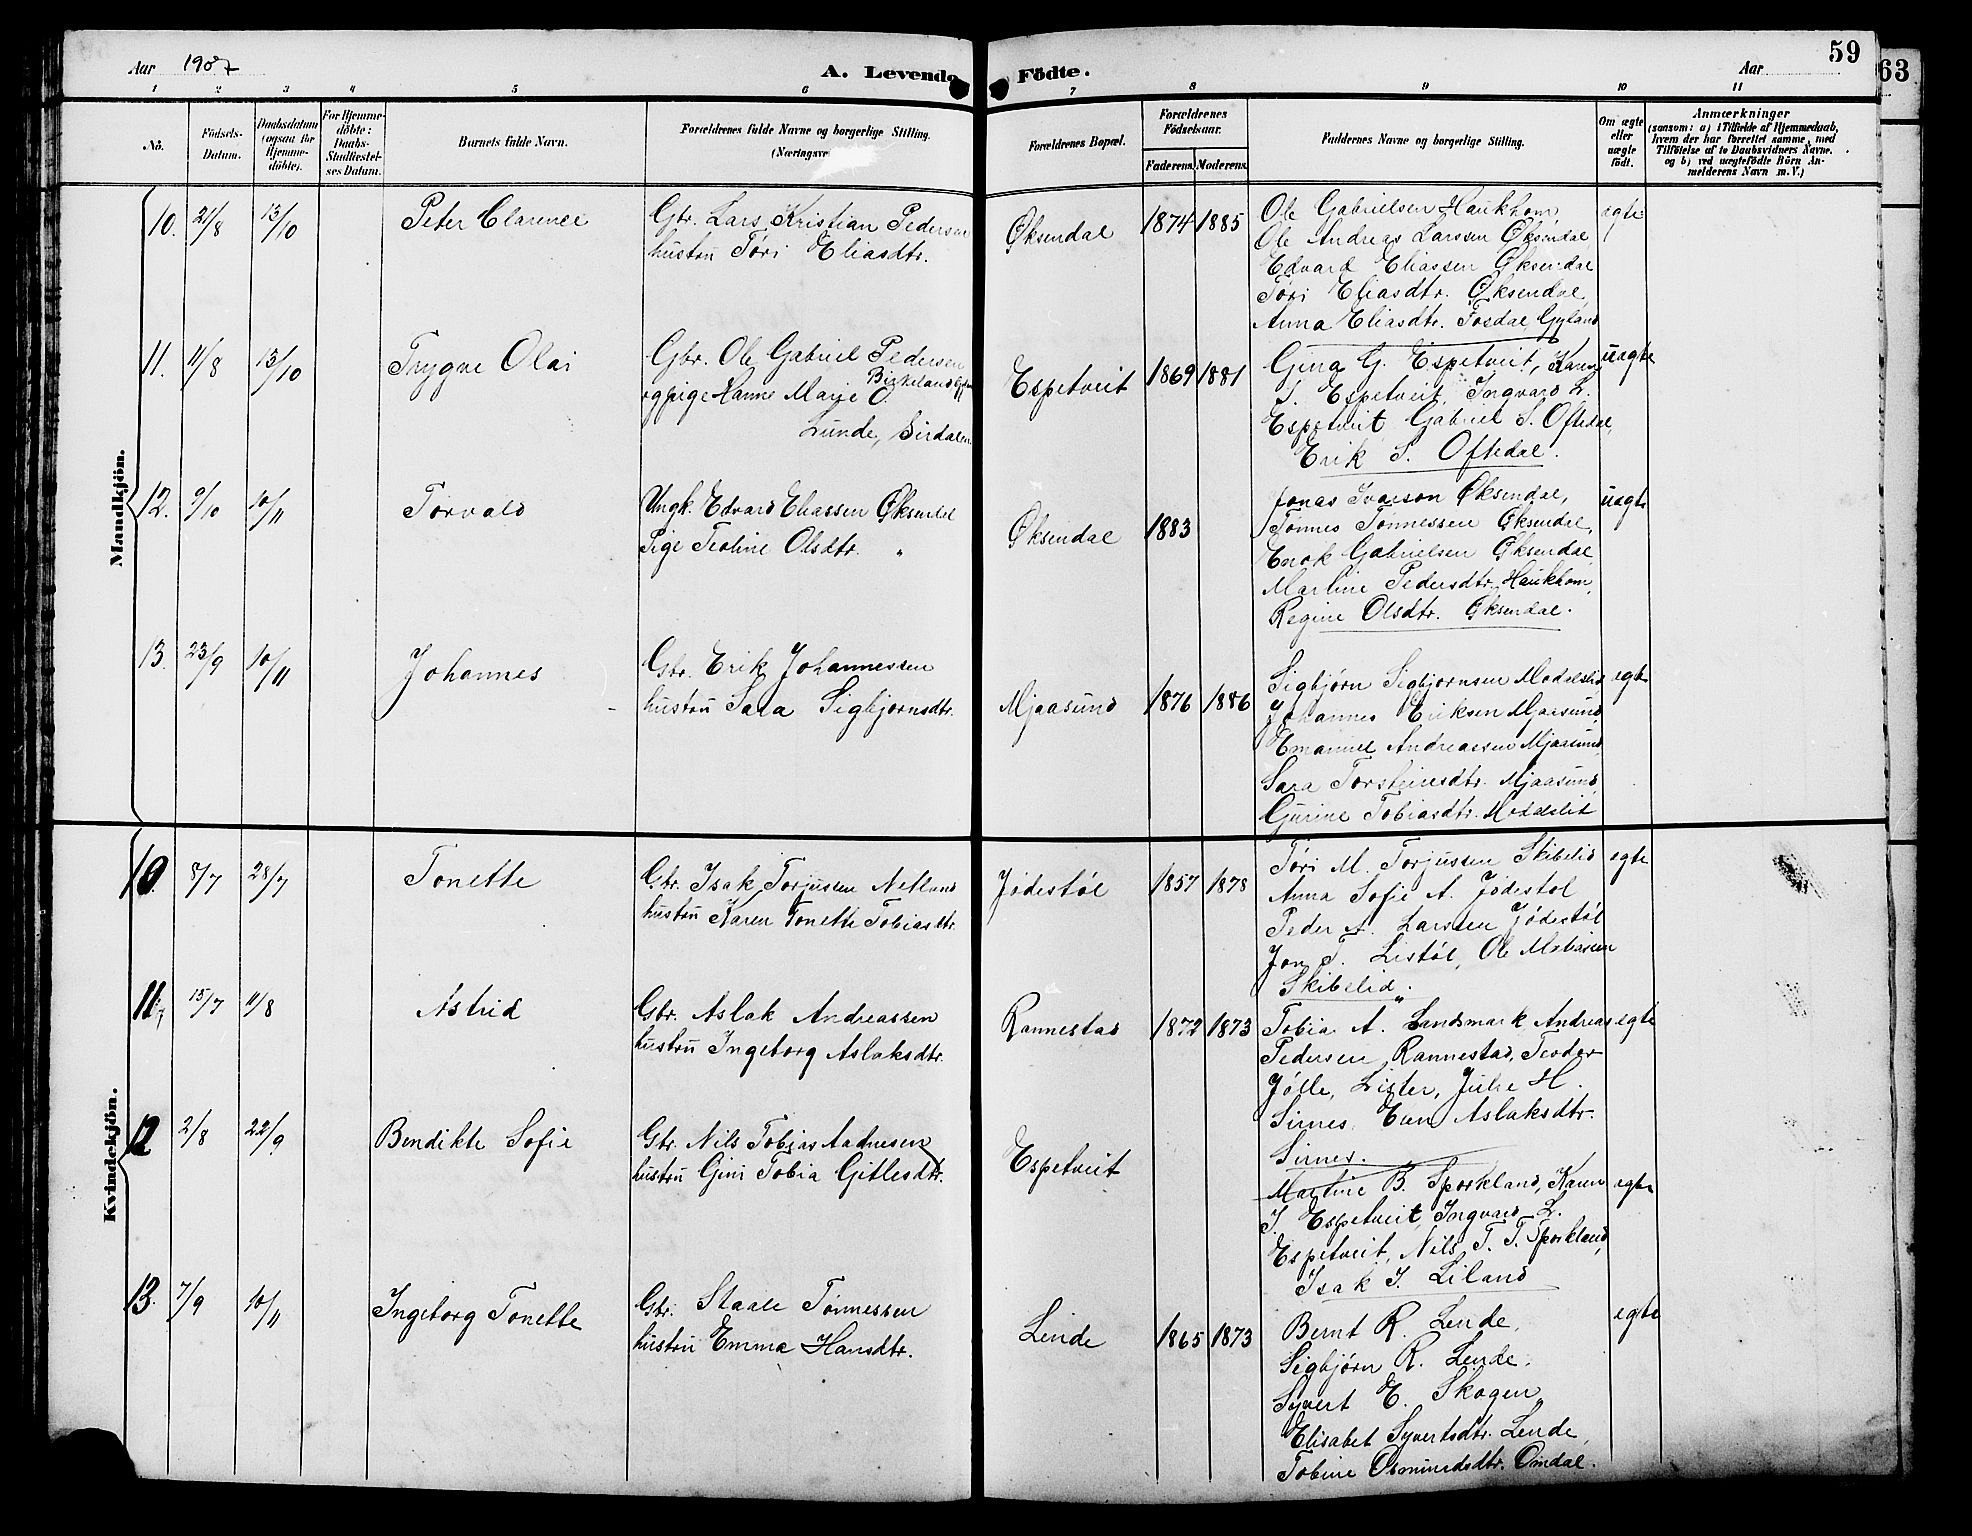 Aar 1907
A. Levende Födte.
Aar
59
63
1 2 3 4 5 6 7 8 9 10 11
No.
Födsels-
Datum.
Daabsdatum
(ogsaa for
Hjemme-
döbte).
For Hjemme-
döbte:
Daabs-
Stadfæstel-
ses Datum.
Barnets fulde Navn.
Forældrenes fulde Navne og borgerlige Stilling.
(Næringsve
Forældrenes Bopæl.
Forældrenes
Födselsaar.
Faderens. Moderens.
Faddernes Navne og borgerlige Stilling.
Om ægte
eller
uægte
født.
Anmærkninger
(saasom: a) i Tilfælde af Hjemmedaab,
hvem der har forrettet samme, med
Tilföielse af to Daabsvidners Navne,
og b) ved uægtefödte Börn An-
melderens Navn m. V.)
Mandkjön.
10. 21/8 13/10 Peter Clarence
Gbr. Lars Kristian Pedersen
hustru Tøri Eliasdtr.
Øksendal 1874 1885
Ole Gabrielsen Haukhom,
Ole Andreas Larssen Øksendal,
Edvard Eliassen Øksendal
Tøri Eliasdtr. Øksendal,
Anna Eliasdtr. Tosdal, Gyland
egte
11. 11/8 13/10 Trygve Olai
Gbr. Ole Gabriel Pedersen
Birkeland
og pige Hanne Marie O.
Lunde, Sirdalen
Espetveit 1869 1881
Gina G. Espetveit, Karen
I. Espetveit, Ingvard L.
Espetveit, Gabriel S. Oftedal,
Erik S. Oftedal.
uegte
12. 9/10 10/11 Torvald
Ungk. Edvard Eliassen Øksendal
Pige Teoline Olsdtr. "
Øksendal 1883
Jonas Ivarson Øksendal,
Tønnes Tønnessen Øksendal,
Enok Gabrielsen Øksendal,
Martine Pedersdtr. Haukhom,
Regine Olsdtr. Øksendal.
uegte
13. 23/9 10/11 Johannes
Gbr. Erik Johannessen
hustru Sara Sigbjørnsdtr.
Mjaasund 1876 1886
Sigbjørn Sigbjørnsen Modeslid
Johannes Eriksen Mjaasund,
Emanuel Andreassen Mjaasund
Sara Torsteinsdtr. Mjaasund,
Gurine Tobiasdtr. Moddelid
egte
Kvindekjön.
10. 8/7 28/7 Tonette
Gbr. Isak Torjussen Netland
hustru Karen Tonette Tobiasdtr.
Jødestøl 1857 1878
Tøri M. Torjussen Skibelid
Anna Sofie A. Jødestøl
Peder A. Larssen Jødestøl
Jon T. Listøl, Ole Matiasen
Skibelid.
egte
11. 15/7 11/8 Astrid
Gbr. Aslak Andreassen
hustru Ingeborg Aslaksdtr.
Rannestad 1872 1873
Tobia A. Landsmark Andreas
Pedersen Rannestad, Teodor
Jølle, Lister, Julie H.
Sirnes, Even Aslaksdtr.
Sirnes.
egte
12 2/8 22/9 Bendikte Sofie
Gbr. Nils Tobias Aadnesen
hustru Gini Tobia Gitlesdtr.
Espetveit
Martine B. Sporkland, Karen
I. Espetveit, Ingvard L.
Espetveit, Nils T. T. Sporkland,
Isak I. Liland
egte
13. 7/9 10/11 Ingeborg Tonette
Gbr. Staale Tønnessen
hustru Emma Hansdtr.
Lende 1865 1873
Bernt R. Lende,
Sigbjørn R. Lende,
Syvert E. Skogen,
Elisabet Syvertsdtr. Lende,
Tobine Osmundsdtr. Omdal.
egte